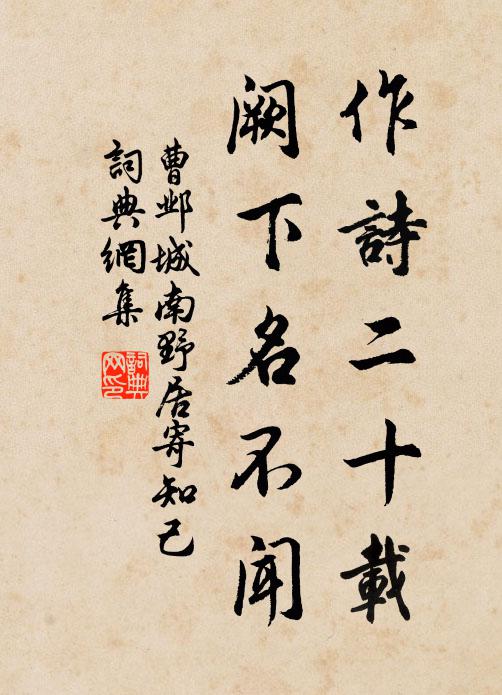 作詩二十載
阙下名不闻
曹邺城南野居寄知己
詞典網集
詞典網印